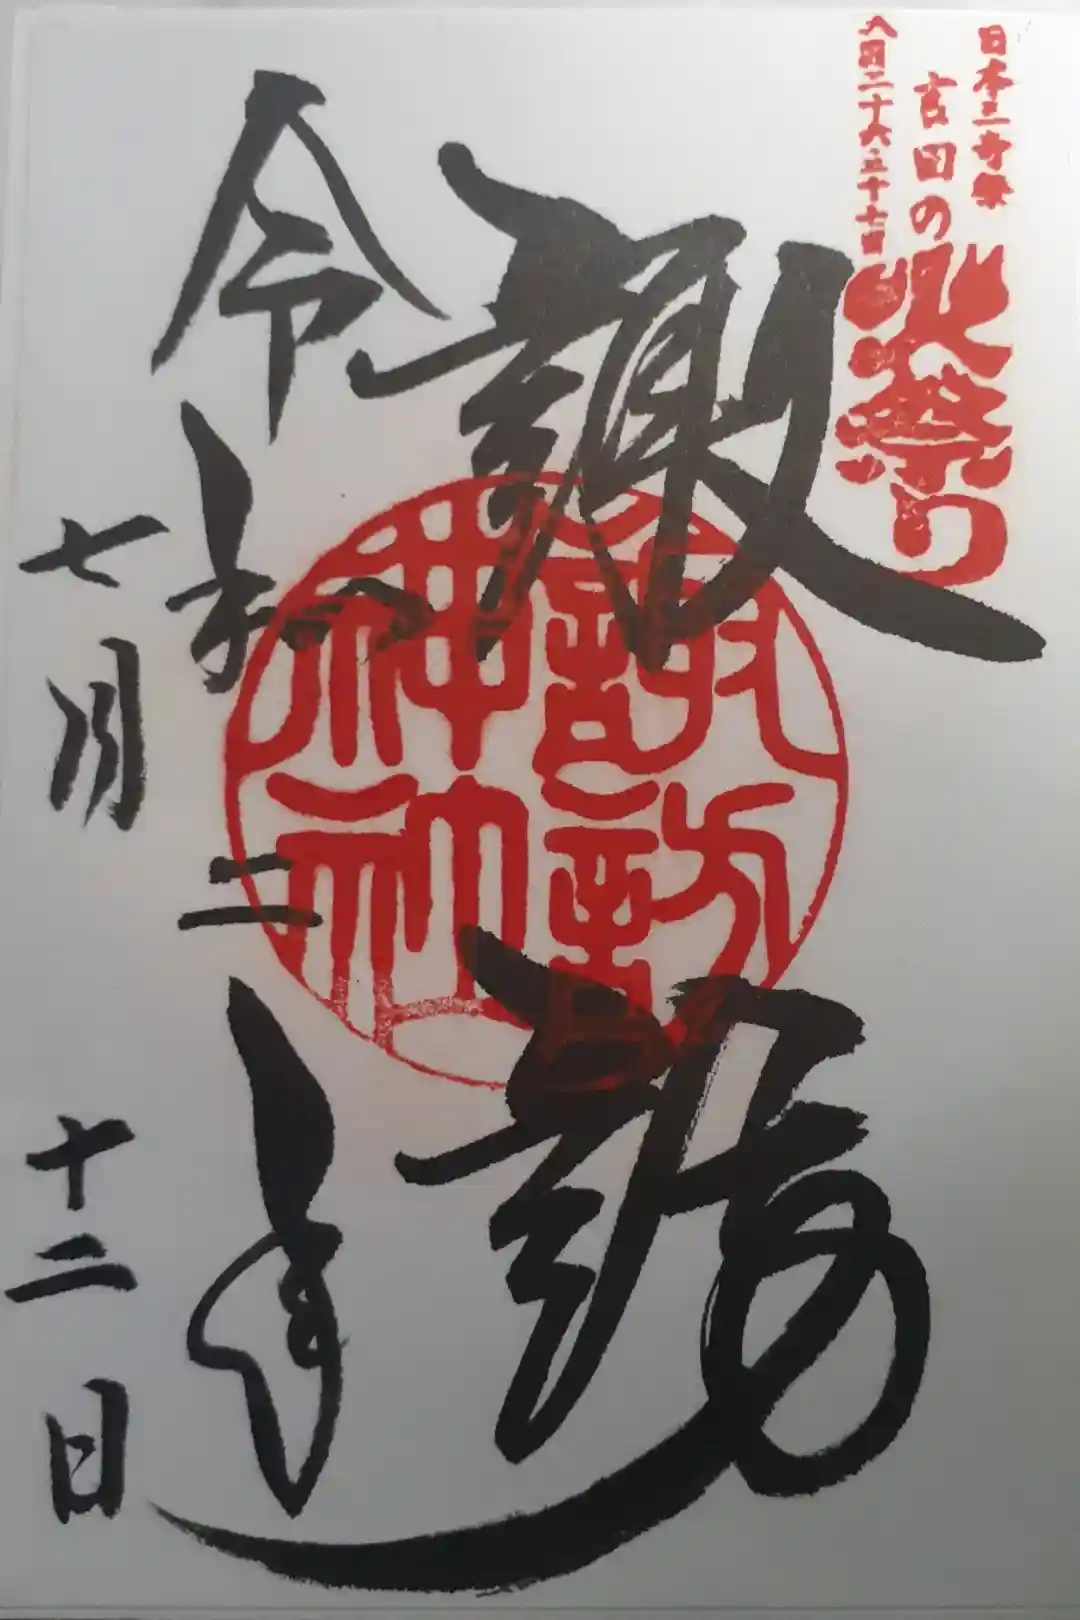 日本三奇祭
吉田の火祭り
八月二十六二十七日
諏訪
諏訪
神社
令和二年
七月十二日